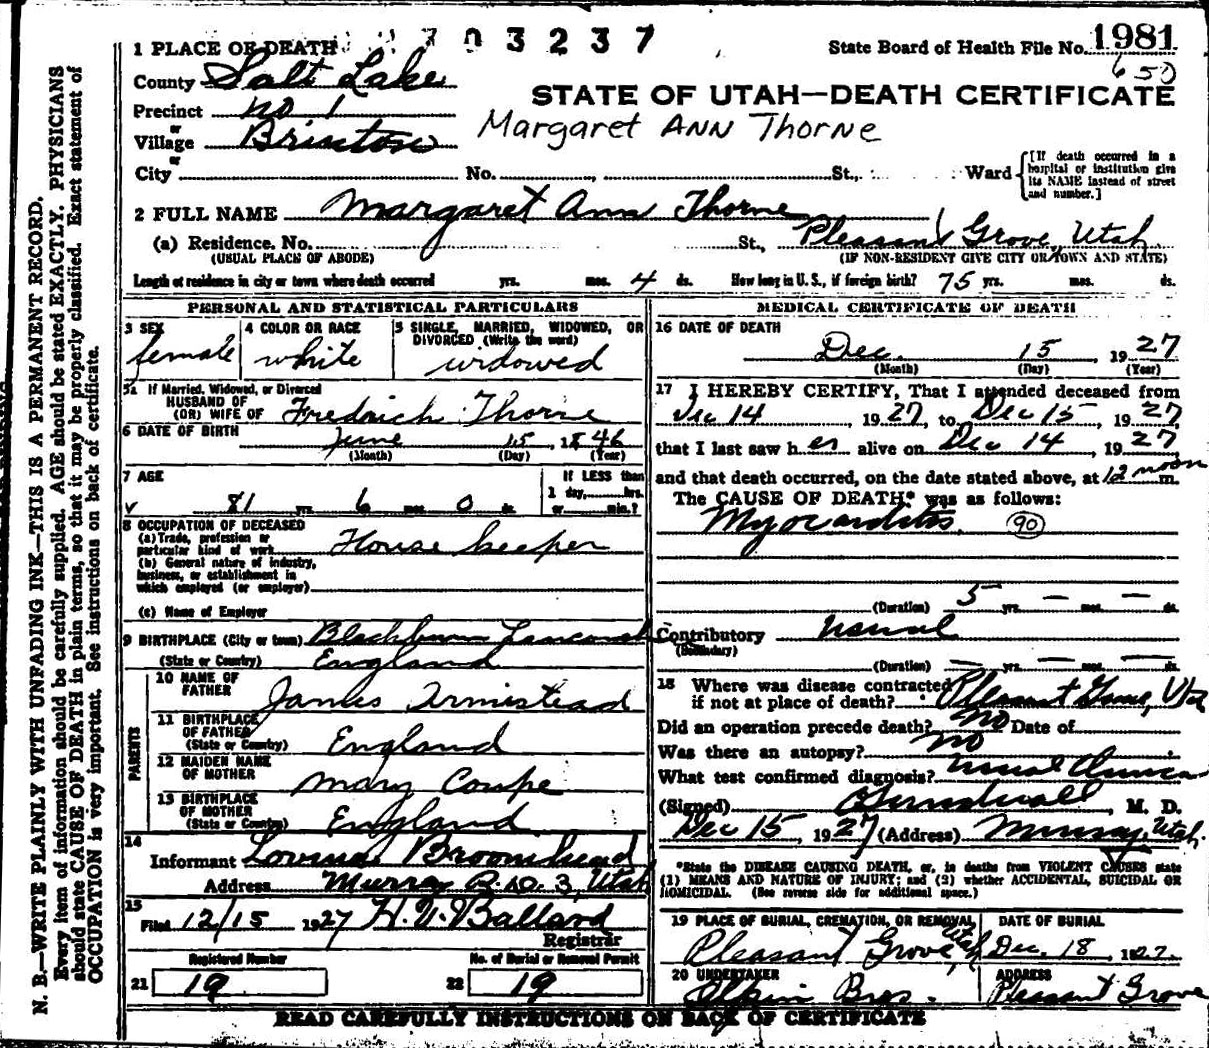 703237
1 PLACE OF DEATH
State Board of Health File No. 1981
County Salt Lake
650
Precinct no 1
STATE OF UTAH—DEATH CERTIFICATE
or
Village Brinton
Margaret ANN Thorne
or
City No. St., Ward
[If death occurred in a
hospital or institution give
its NAME instead of street
and number.]
2 FULL NAME Margaret Ann Thorne
(a) Residence. No. St., Pleasant Grove, Utah
(USUAL PLACE OF ABODE) (IF NON-RESIDENT GIVE CITY OR TOWN AND STATE)
Length of residence in city or town where death occurred yrs. mos. 4 ds. How long in U. S., if foreign birth? 75 yrs. mos. ds.
PERSONAL AND STATISTICAL PARTICULARS
3 SEX
female
4 COLOR OR RACE
white
5 SINGLE, MARRIED, WIDOWED, OR
DIVORCED (Write the word)
widowed
5a If Married, Widowed, or Divorced
HUSBAND OF
(OR) WIFE OF Fredrich Thorne
6 DATE OF BIRTH June 15, 1846
(Month) (Day) (Year)
7 AGE
81 yrs. 6 mos. 0 ds.
If LESS than
1 day, hrs.
or min.?
8 OCCUPATION OF DECEASED
(a) Trade, profession or
particular kind of work House keeper
(b) General nature of industry,
business, or establishment in
which employed (or employer)
(c) Name of Employer
9 BIRTHPLACE (City or town) Blackburn
(State or Country) England
PARENTS
10 NAME OF
FATHER James Armistead
11 BIRTHPLACE
OF FATHER
(State or Country) England
12 MAIDEN NAME
OF MOTHER Mary Coupe
13 BIRTHPLACE
OF MOTHER
(State or Country) England
14
Informant Lovina Broomhead
Address Murray R.D. 3, Utah
15
Filed 12/15 1927 H. V. Ballard
Registrar
Registered Number
21 19
No. of Burial or Removal Permit
22 19
MEDICAL CERTIFICATE OF DEATH
16 DATE OF DEATH
Dec. 15, 1927
(Month) (Day) (Year)
17 I HEREBY CERTIFY, That I attended deceased from
Dec 14 1927, to Dec 15, 1927,
that I last saw her alive on Dec 14, 1927
and that death occurred, on the date stated above, at 12 noon m.
The CAUSE OF DEATH* was as follows:
Myocarditis. 90
(Duration) 5 yrs. — mos. — ds.
Contributory usual
(Secondary)
(Duration) — yrs. — mos. — ds.
18 Where was disease contracted
if not at place of death? Pleasant Grove, Utah
Did an operation precede death? no Date of
Was there an autopsy? no
What test confirmed diagnosis? usual
(Signed) M. D.
Dec 15, 1927 (Address) Murray, Utah.
*State the DISEASE CAUSING DEATH, or, in deaths from VIOLENT CAUSES state
(1) MEANS AND NATURE OF INJURY; and (2) whether ACCIDENTAL, SUICIDAL OR
HOMICIDAL. (See reverse side for additional space.)
19 PLACE OF BURIAL, CREMATION, OR REMOVAL
Pleasant Grove Utah
DATE OF BURIAL
Dec. 18, 1927.
20 UNDERTAKER
Olpin Bros.
ADDRESS
Pleasant Grove
READ CAREFULLY INSTRUCTIONS ON BACK OF CERTIFICATE
N. B.—WRITE PLAINLY WITH UNFADING INK—THIS IS A PERMANENT RECORD.
Every item of information should be carefully supplied. AGE should be stated EXACTLY. PHYSICIANS
should state CAUSE OF DEATH in plain terms, so that it may be properly classified. Exact statement of
OCCUPATION is very important. See instructions on back of certificate.